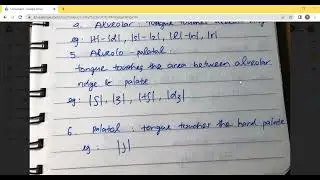 4. Alveolar : tongue touches alveolar
eg: |t|-|d|, |s|-|z|, |l|-|n|, |r|
5. Alveolo - palatal :
tongue touches the area between alveolar
ridge & palate
eg: |ʃ|, |ʒ|, |tʃ|, |dʒ|
6. Palatal : tongue touches the hard palate
eg: |j|